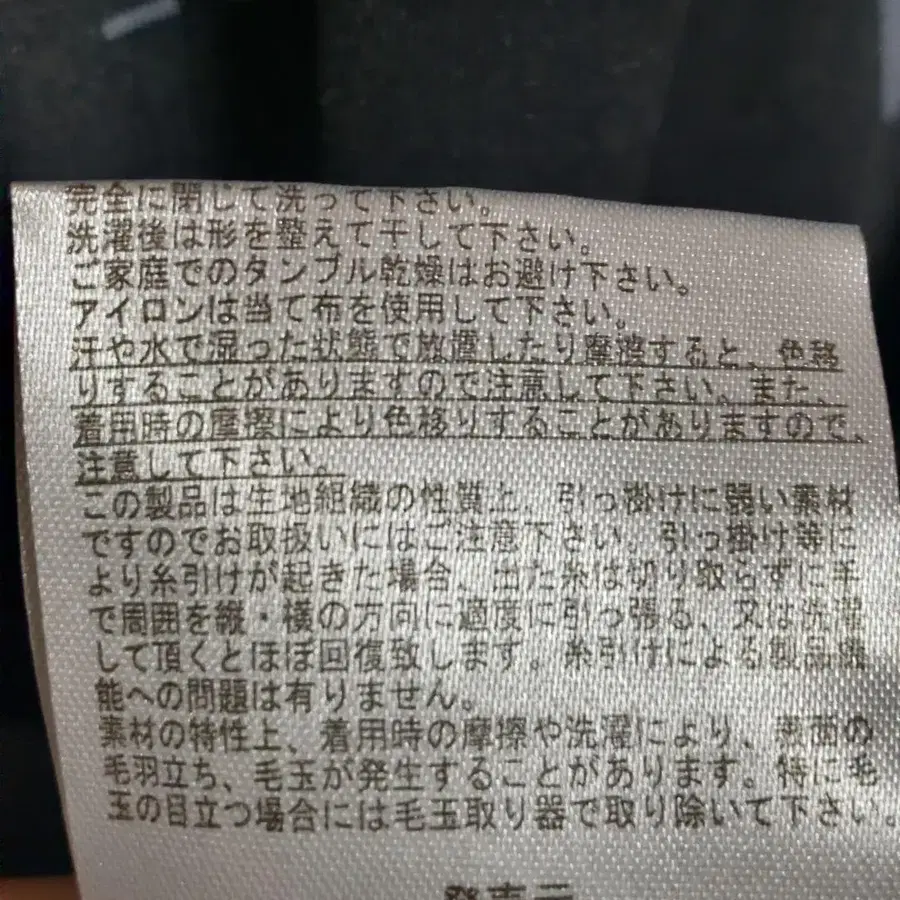 完全に閉じて洗って下さい。
洗濯後は形を整えて干して下さい。
ご家庭でのタンブル乾燥はお避け下さい。
アイロンは当て布を使用して下さい。
汗や水で湿った状態で放置したり摩擦すると、色移
りすることがありますので注意して下さい。また、
着用時の摩擦により色移りすることがありますので、
注意して下さい。
この製品は生地組織の性質上、引っ掛けに弱い素材
ですのでお取扱いにはご注意下さい。引っ掛け等に
より糸引けが起きた場合、出た糸は切り取らずに手
で周囲を縦・横の方向に適度に引っ張る、又は洗濯
して頂くとほぼ回復致します。糸引けによる製品機
能への問題は有りません。
素材の特性上、着用時の摩擦や洗濯により、表面の
毛羽立ち、毛玉が発生することがあります。特に毛
玉の目立つ場合には毛玉取り器で取り除いて下さい。
発売元